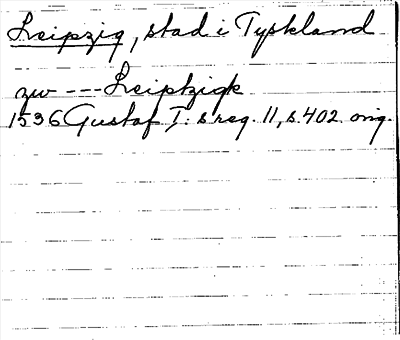 Leipzig, stad i Tyskland
zw --- Leiptzigk
1536 Gustaf I: s reg. 11, s. 402. orig.